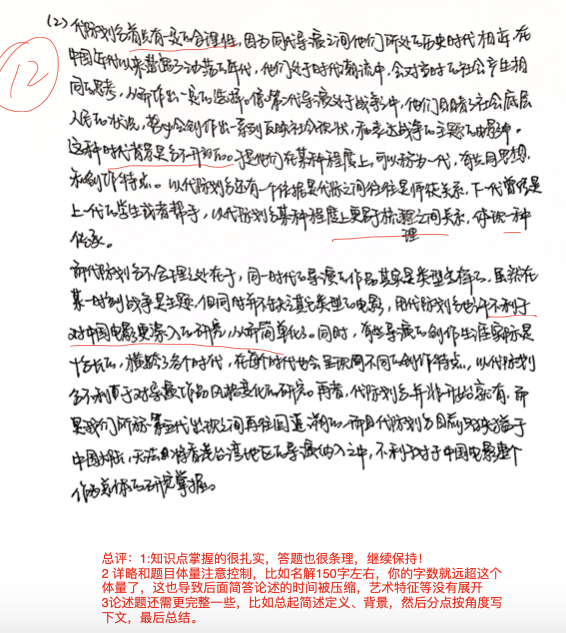 (2) 代际划分首先有一定的合理性,因为同代导演之间他们所处的历史时代相近,在
12
中国近代以来整距了动荡的年代,他们处于时代潮流中,会对当时的社会产生相
同的思考,从而作出一定的选择。像第二代导演处于战争中,他们目睹了社会底层
人民的状况,就会创作出一系列反映社会现状,和表达战争的主题的电影。
这种时代背景是分不开的。于是他们在某种程度上,可以称为一代,有共同思想
和创作特点。以代际划分还有一个依据是代际之间往往是师徒关系,下一代曾经是
上一代的学生或者帮手,以代际划分某种程度上更易于梳理之间关系,体现一种
理
传承。
而代际划分不合理之处在于,同一时代的导演的作品其实是类型多样的,虽然在
某一时刻战争是主题,但同时并不缺乏其它类型的电影,用代际划分也许不利于
对中国电影更深入的研究,从而简单化了。同时,有些导演的创作生涯实际是
十分长的,横跨了多个时代,在每个时代也会呈现不同的创作特点,以代际划
分不利于对导演作品风格变化的研究。再者,代际划分并非开始就有,而
是我们所称第五代出现之间再往回追溯的。而且代际划分目前只局限于
中国大陆,无法将香港台湾地区的导演纳入之中,不利于对于中国电影整个
作为整体的研究掌握。
总评:1:知识点掌握的很扎实,答题也很条理,继续保持!
2 详略和题目体量注意控制,比如名解150字左右,你的字数就远超这个
体量了,这也导致后面简答论述的时间被压缩,艺术特征等没有展开
3论述题还需更完整一些,比如总起简述定义、背景,然后分点按角度写
下文,最后总结。